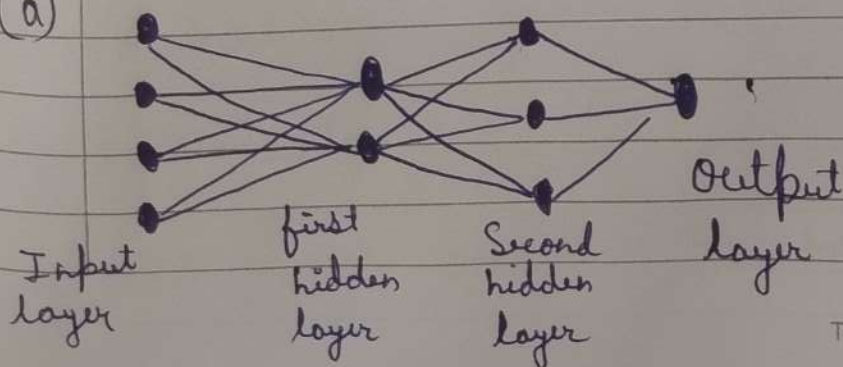 (a)
Input
layer
first
hidden
layer
Second
hidden
layer
Output
layer